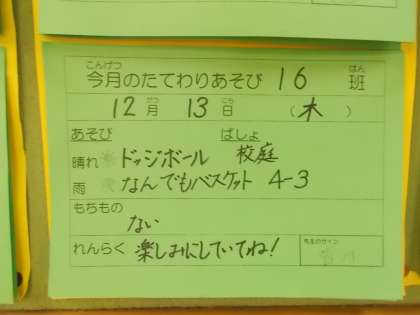 こんげつ はん
今月のたてわりあそび 16 班
がつ にち
12月 13日 (木)
あそび ばしょ
晴れ ドッジボール 校庭
雨 なんでもバスケット 4-3
もちもの
ない
れんらく 楽しみにしていてね!
先生のサイン